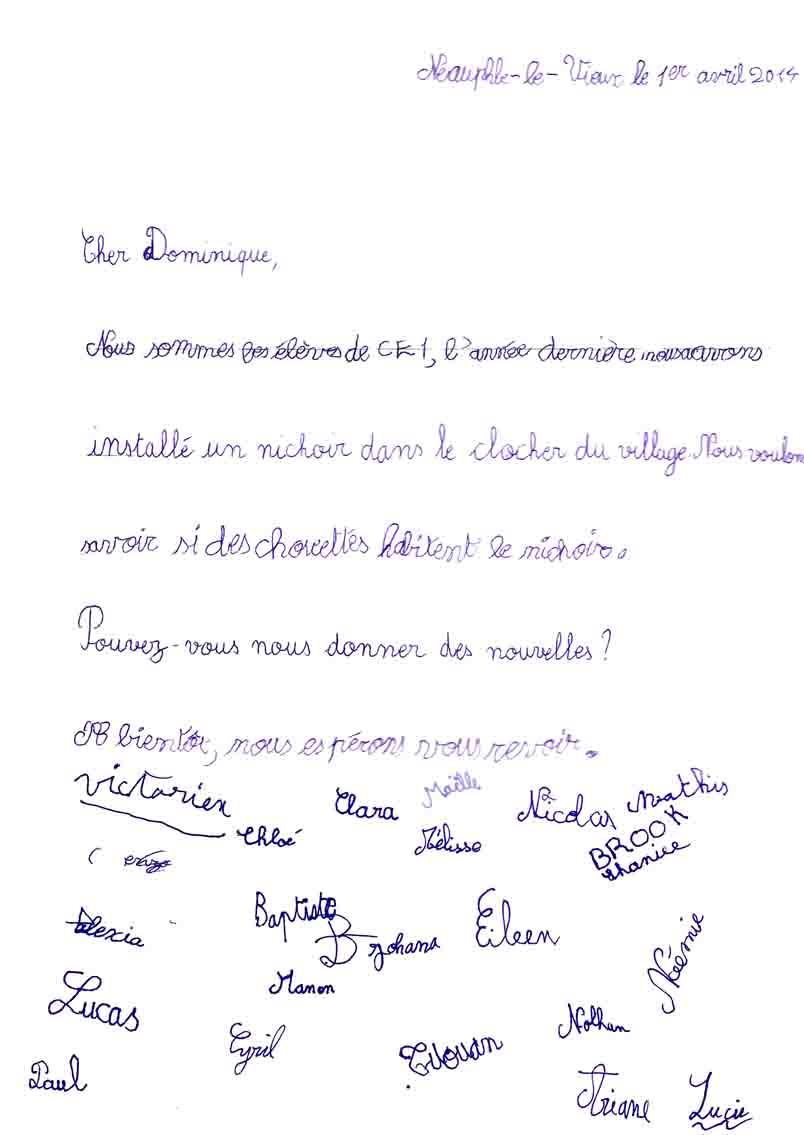 Neauphle-le-Vieux le 1er avril 2014
Cher Dominique,
Nous sommes les élèves de CE1, l'année dernière nous avons
installé un nichoir dans le clocher du village. Nous voulons
savoir si des chouettes habitent le nichoir.
Pouvez-vous nous donner des nouvelles?
A bientôt, nous espérons vous revoir.
Victorien Clara Maëlle Nicolas Mathis
Chloé Mélisse BROOK
Shanice
Alexia Baptiste B Johana Eileen Noémie
Lucas Manon
Cyril Titouan Nathan
Paul Ariane Lucie